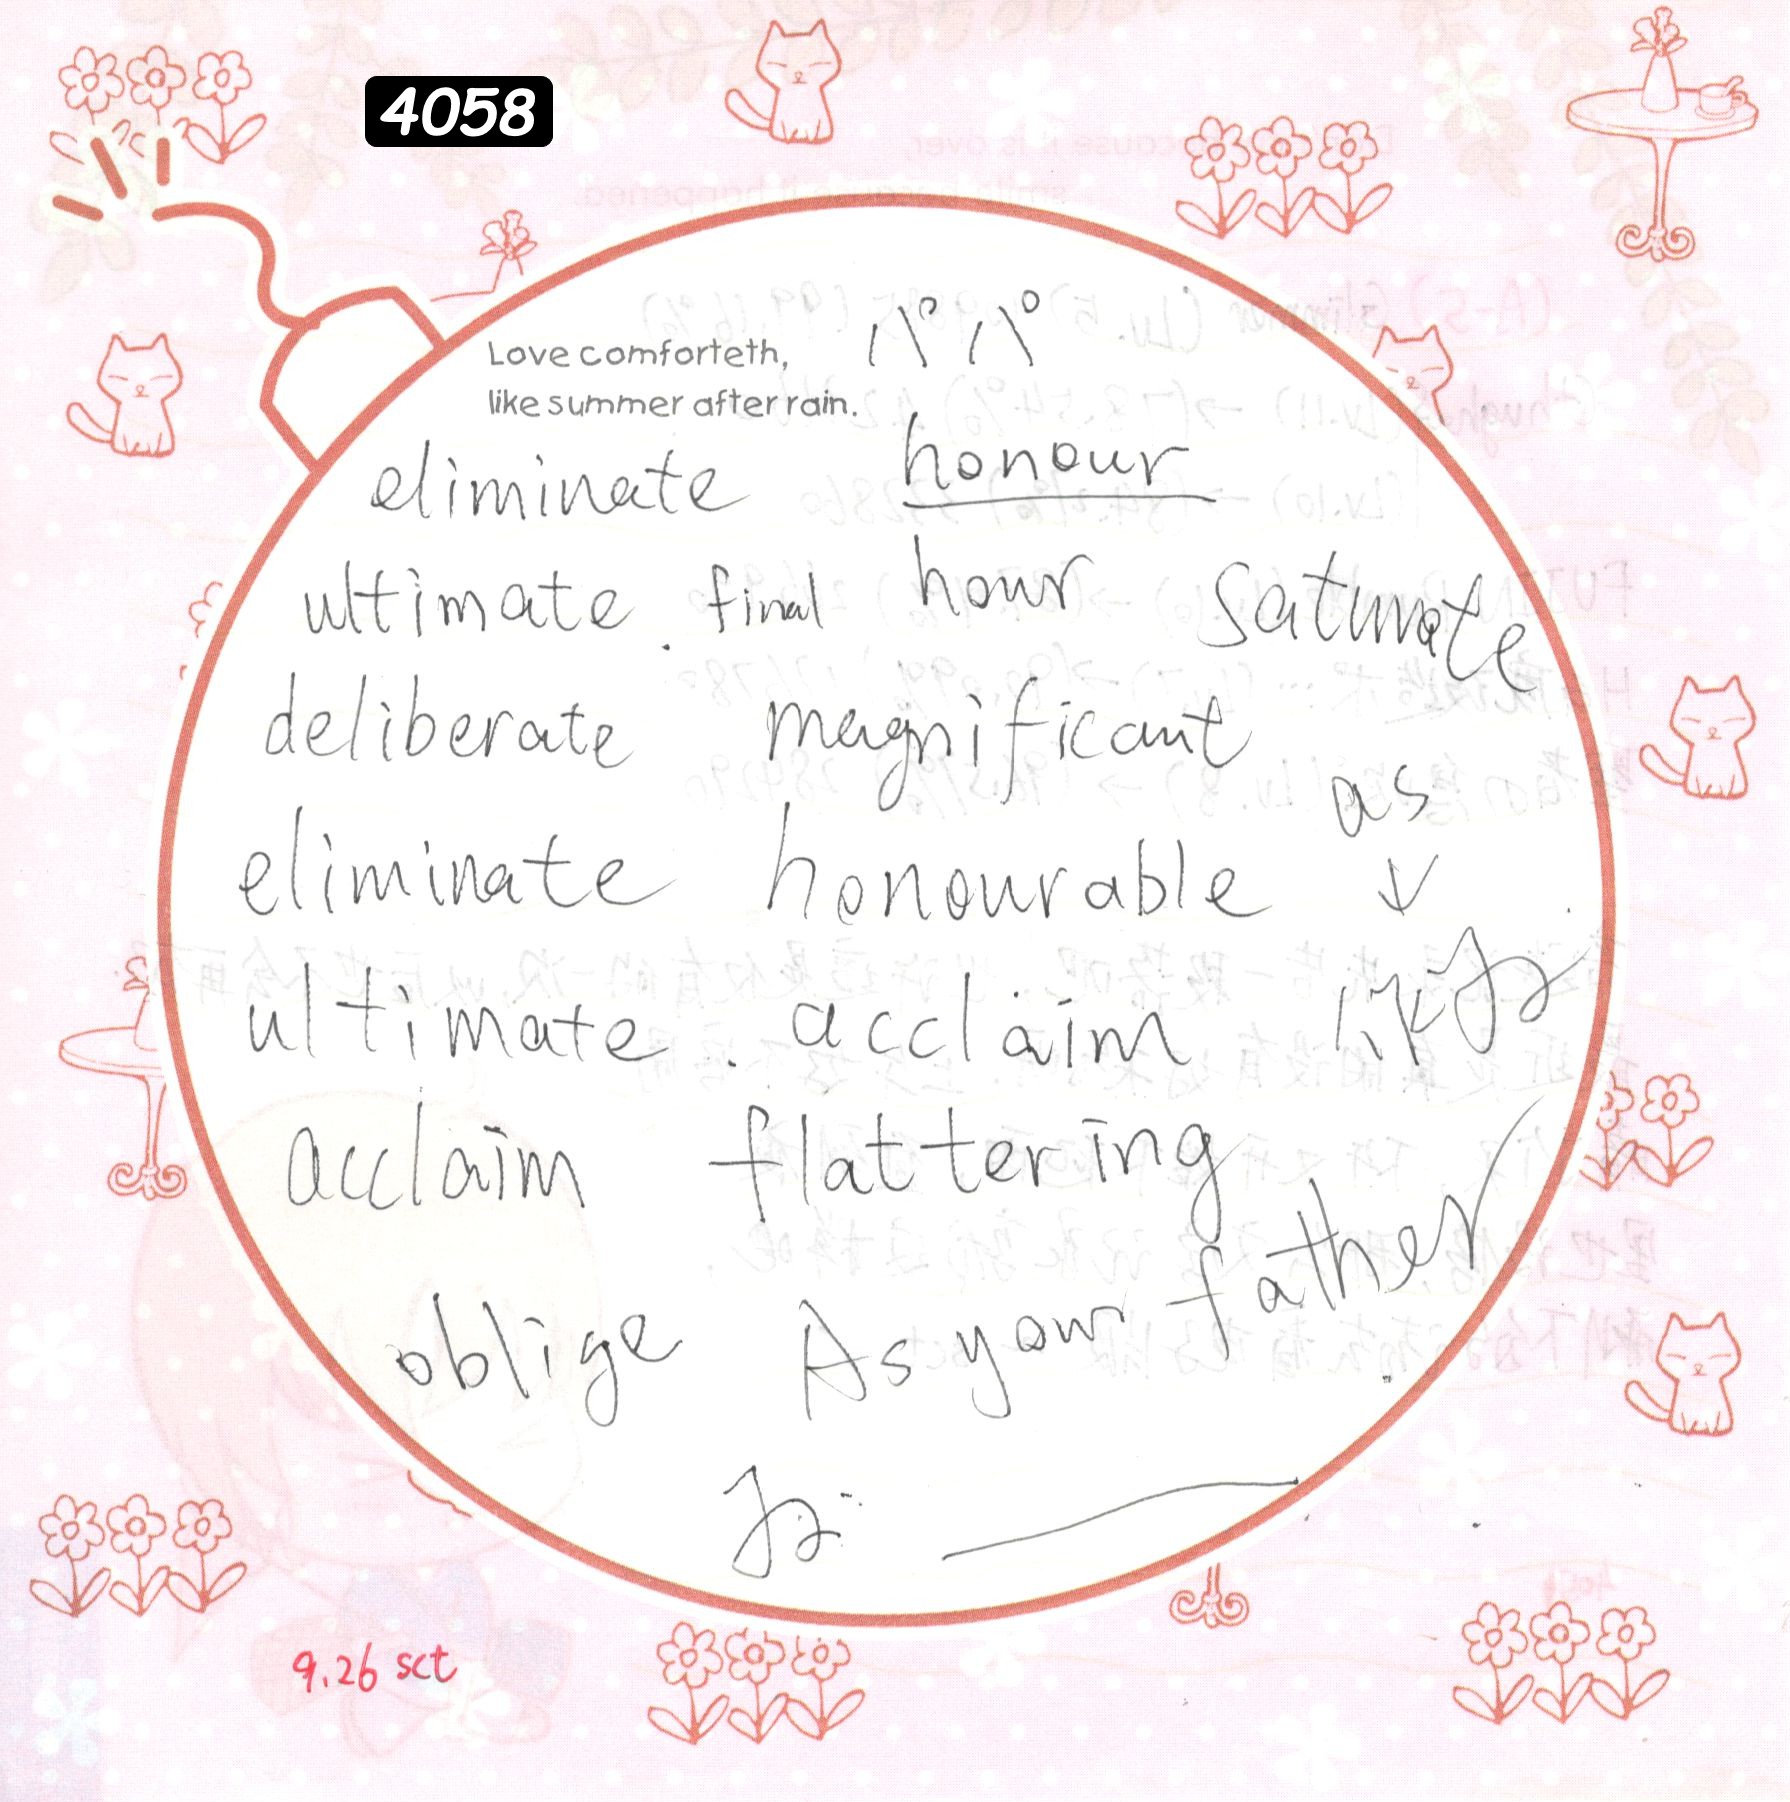 4058
Love comforteth,
like summer after rain.
パパ
eliminate honour
ultimate. final hour saturate
deliberate magnificant
as
eliminate honourable
ultimate. acclaim
acclaim flattering
oblige As your father
9.26 sct